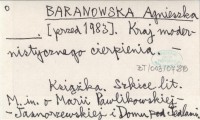 o BARANOWSKA Agnieszka
. [przed 1983]. Kraj moder-
nistycznego cierpienia. —
Książka. Szkice lit.
M. in. o Marii Pawlikowskiej-
-Jasnorzewskiej i Domu pod Jedlami.